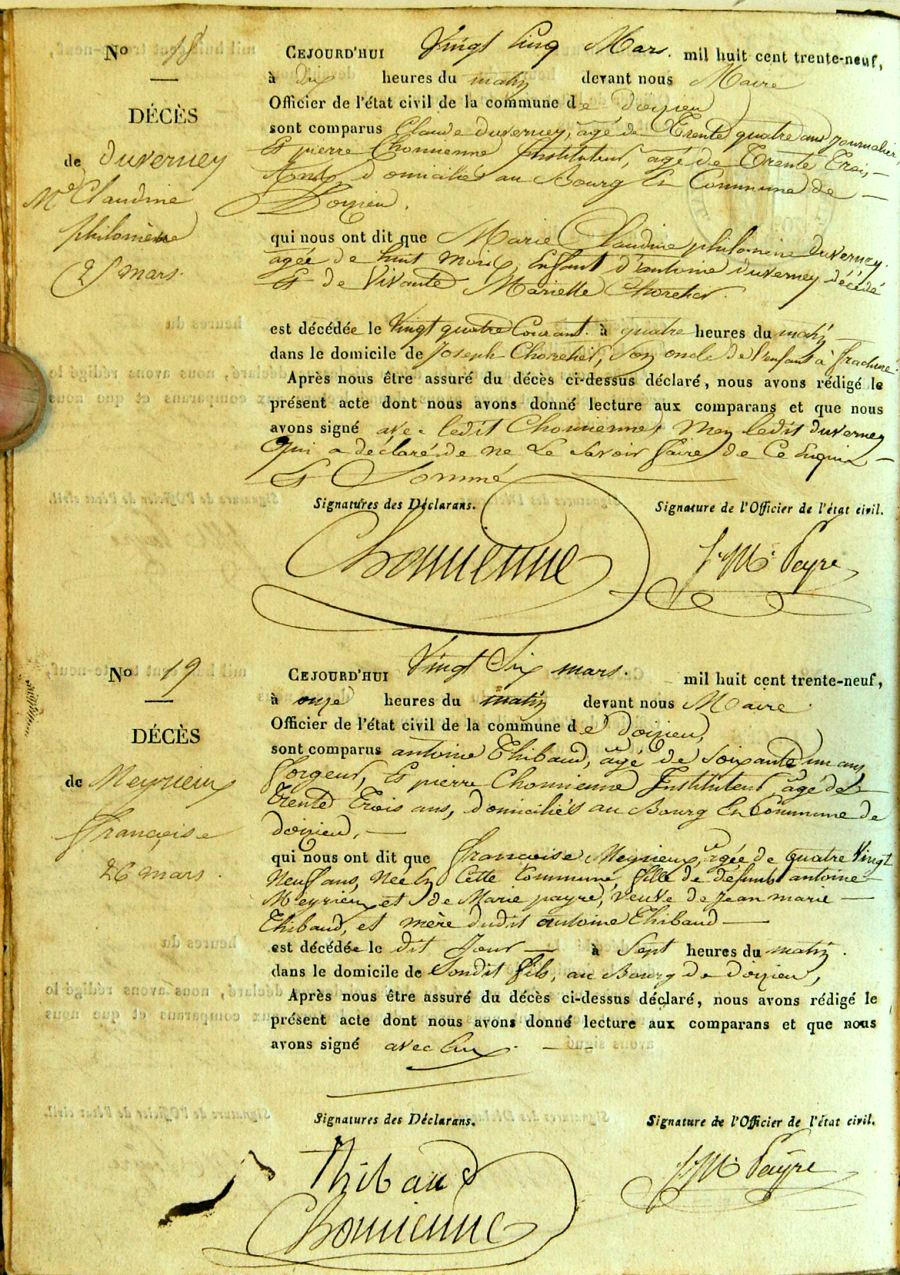 No 18
DÉCÈS
de Duverney
Me Claudine
philomène
25 mars.
CEJOURD'HUI Vingt Cinq Mars. mil huit cent trente-neuf,
à dix heures du matin devant nous Maire
Officier de l'état civil de la commune de doizieu
sont comparus Claude duverney, agé de Trente quatre ans journalier
Et pierre Chomienne Instituteur, agé de Trente Trois
Ans, domiciliés au Bourg En Commune de
Doizieu.
qui nous ont dit que Marie Claudine philomène duverney.
agée de huit mois, Enfant d'antoine duverney décédé
Et de Vivante Mariette Chorehet
est décédée le Vingt quatre Courant. à quatre heures du matin
dans le domicile de Joseph Chorehet, son oncle de l'enfant à fracture.
Après nous être assuré du décès ci-dessus déclaré, nous avons rédigé le
présent acte dont nous avons donné lecture aux comparans et que nous
avons signé avec ledit Chomienne, Non ledit duverney
Qui a déclaré de ne Le Savoir faire de Ce Enquis
Et Sommé
Signatures des Déclarans.
Signature de l'Officier de l'état civil.
Chomienne
J. M. Payre
No 19
DÉCÈS
de Meyrieux
françoise
26 mars.
CEJOURD'HUI Vingt Six mars. mil huit cent trente-neuf,
à onze heures du matin devant nous Maire
Officier de l'état civil de la commune de doizieu,
sont comparus antoine Thibaud, agé de soixante un ans,
forgeur, Et pierre Chomienne Instituteur, agé de
Trente Trois ans, domiciliés au Bourg En Commune de
doizieu,
qui nous ont dit que françoise Meyrieux, agée de quatre Vingt
Neuf ans, Née En Cette Commune fille de défunt antoine
Meyrieux et de Marie payre, veuve de Jean marie
Thibaud, et mère dudit antoine Thibaud
est décédée le dit Jour à Sept heures du matin.
dans le domicile de Sondit fils, au Bourg de doizieu,
Après nous être assuré du décès ci-dessus déclaré, nous avons rédigé le
présent acte dont nous avons donné lecture aux comparans et que nous
avons signé avec Eux.
Signatures des Déclarans.
Signature de l'Officier de l'état civil.
Thibaud
Chomienne
J. M. Payre